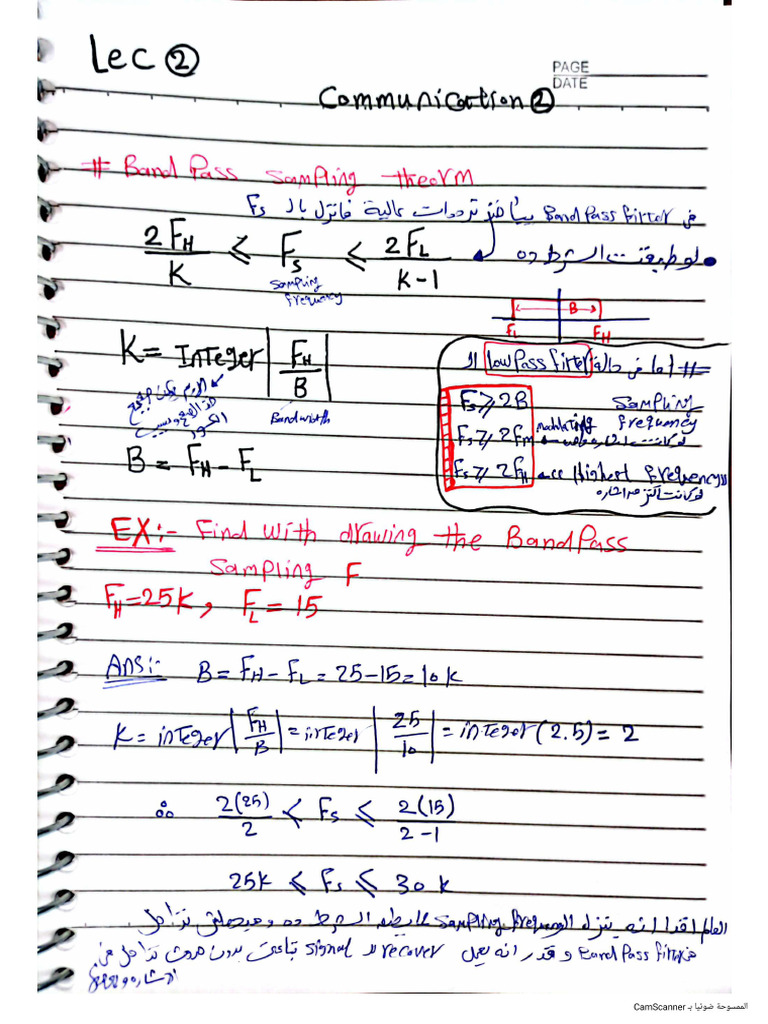 Lec ②
PAGE
DATE
Communication ②
# Band Pass sampling theorm
في Band Pass filter بياخد ترددات عالية فانزل بال Fs
• لو طبقت الشرط ده
2FH/K ≤ Fs ≤ 2FL/K-1
sampling frequency
B
FL FH
K = Integer |FH/B|
Bandwidth
B = FH - FL
# اما في حالة ال low Pass filter
Fs ≥ 2B
sampling frequency
Fs ≥ 2Fm modulating
Fs ≥ 2FH Highest frequency
EX:- Find with drawing the Band Pass
Sampling F
FH = 25K, FL = 15
Ans:- B = FH - FL = 25 - 15 = 10 K
K = integer |FH/B| = integer |25/10| = integer (2.5) = 2
∴ 2(25)/2 ≤ Fs ≤ 2(15)/2-1
25K ≤ Fs ≤ 30 K
العالم ده قدر انه ينزل ال sampling frequency الشرط ده
في Band Pass filter و قدر انه يعمل recover لل signal بتاعتي بدون حدوث تداخل في
الممسوحة ضوئيا بـ CamScanner